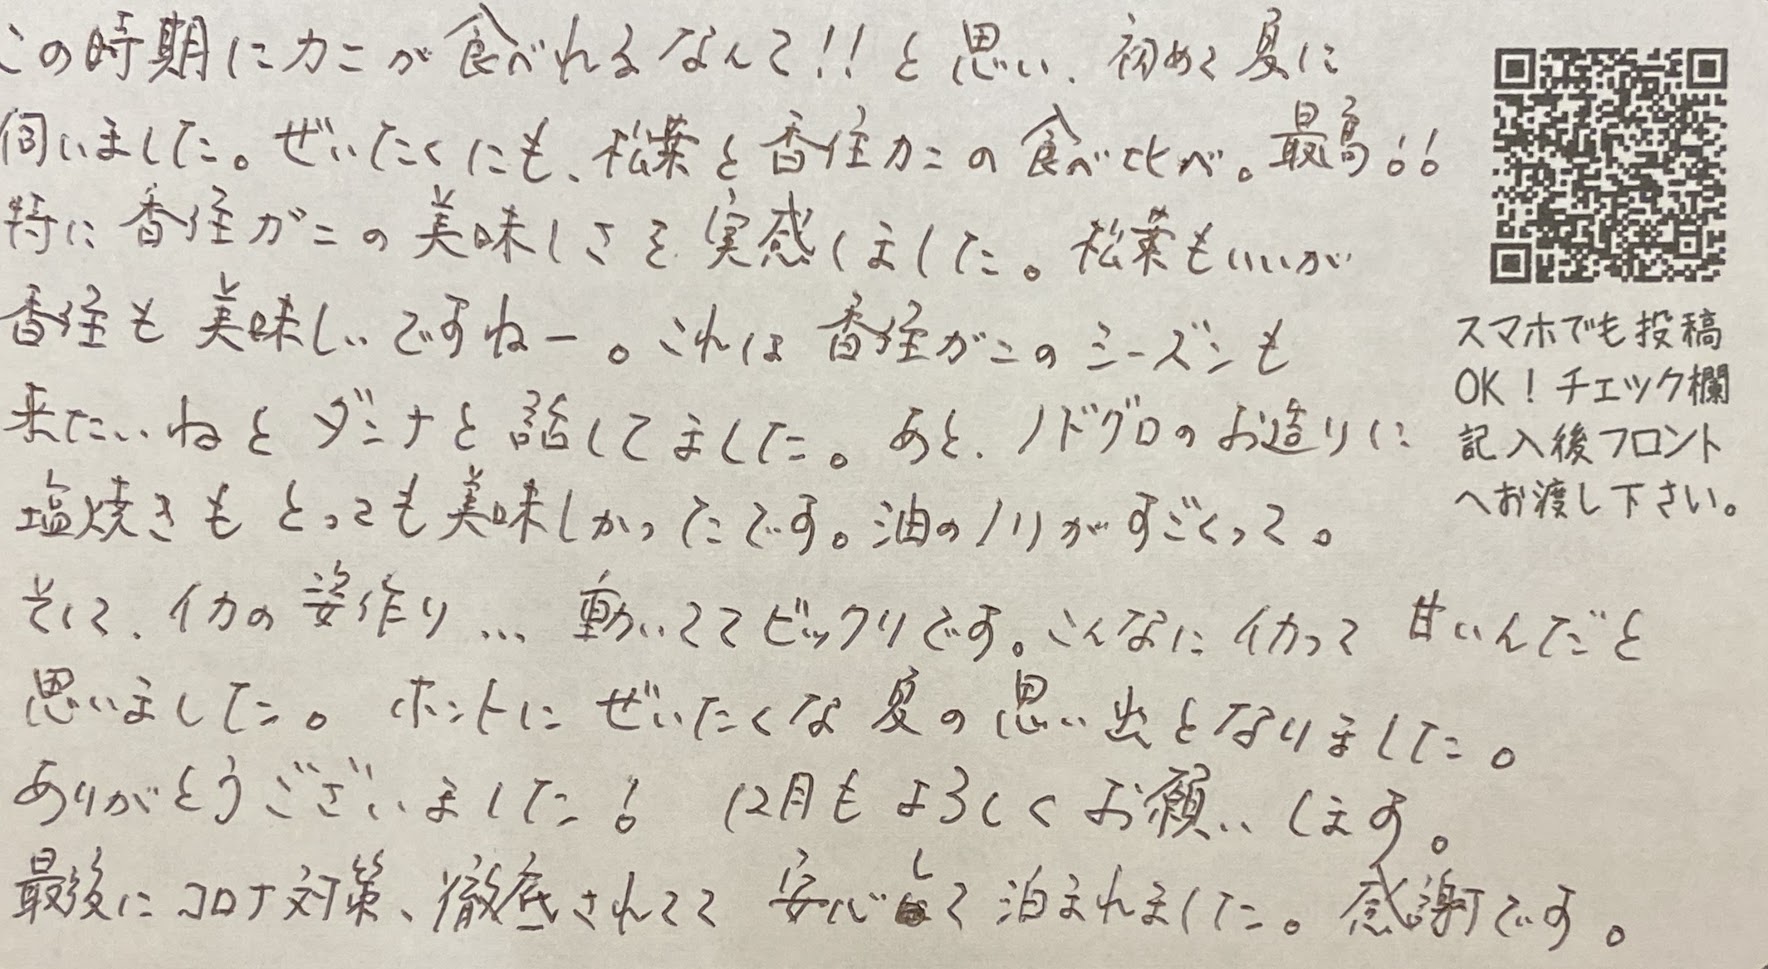 この時期にカニが食べれるなんて!!と思い、初めて夏に
伺いました。ぜいたくにも、松葉と香住カニの食べ比べ。最高!!
特に香住ガニの美味しさを実感しました。松葉もいいが
香住も美味しいですねー。これは香住ガニのシーズンも
来たいねとダンナと話してました。あと、ノドグロのお造りに
塩焼きもとっても美味しかったです。油のノリがすごくって。
そして、イカの姿作り... 動いててビックリです。こんなにイカって甘いんだと
思いました。ホントにぜいたくな夏の思い出となりました。
ありがとうございました! 12月もよろしくお願いします。
最後にコロナ対策、徹底されてて安心して泊まれました。感謝です。
スマホでも投稿
OK!チェック欄
記入後フロント
へお渡し下さい。